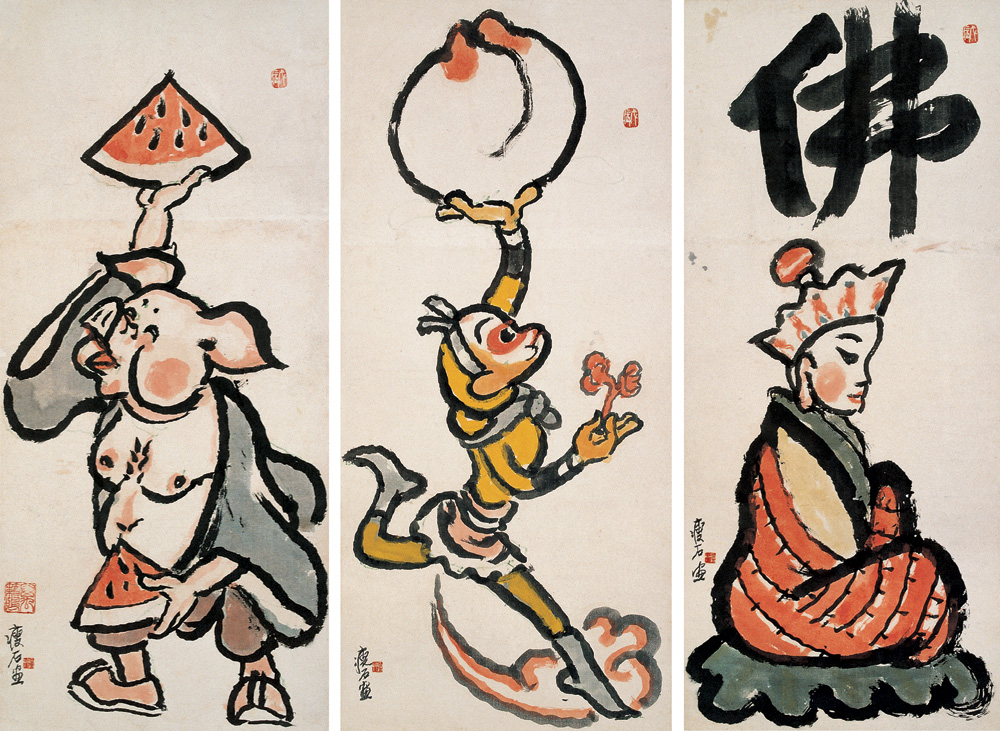 瘦石画
瘦石画
佛
瘦石画